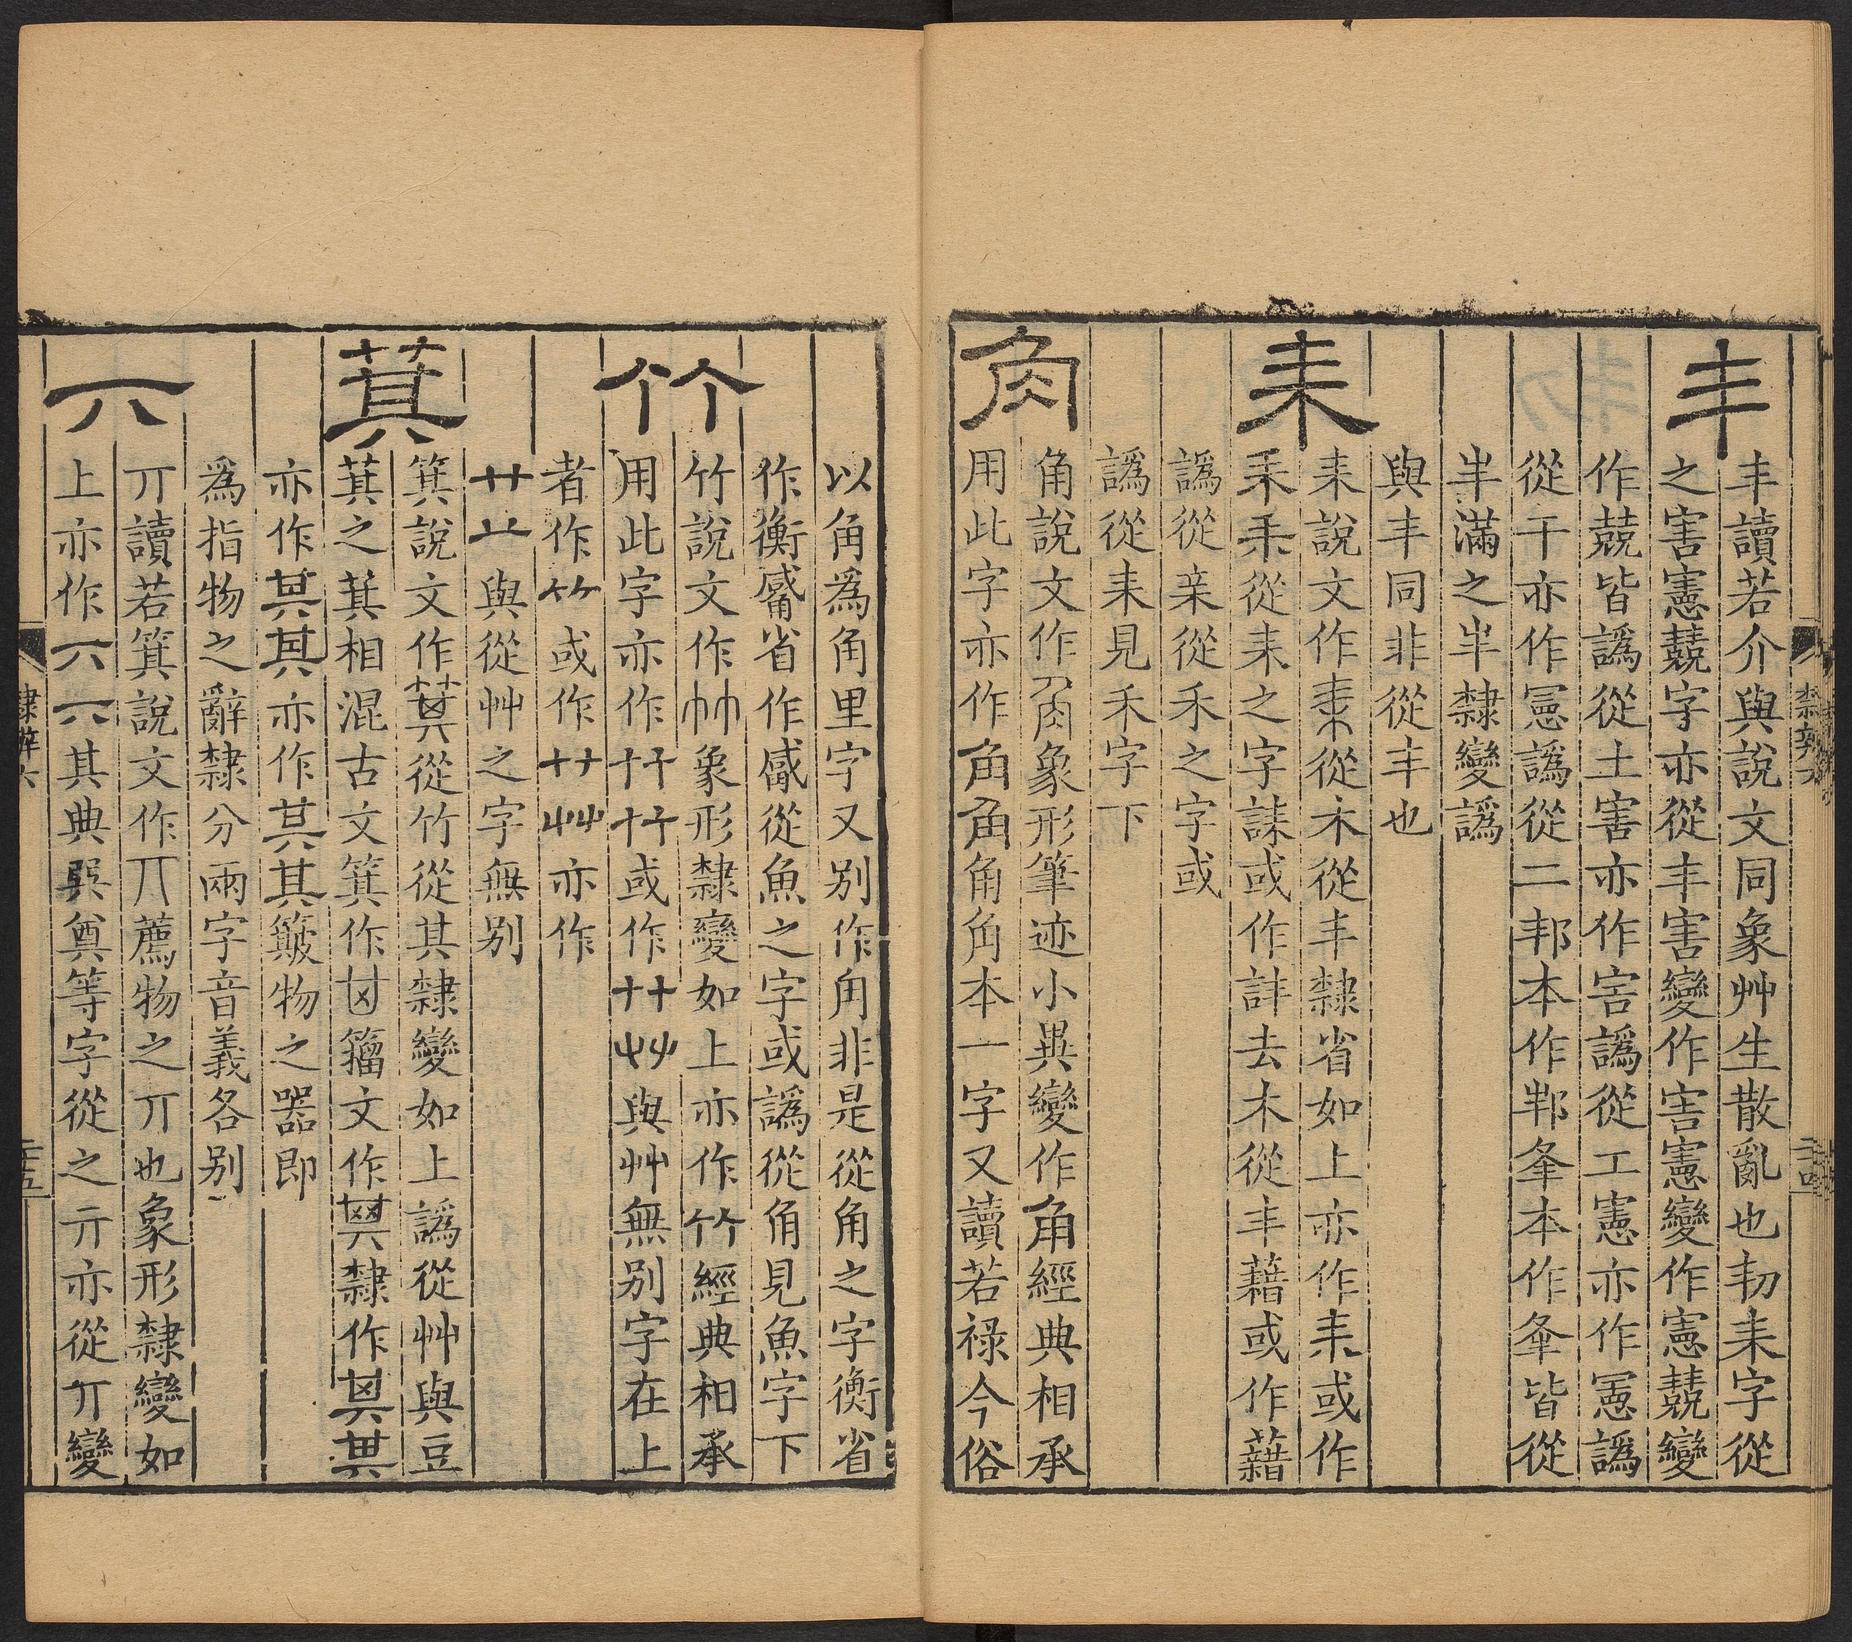 丯
丯讀若介與說文同象艸生散亂也㓞耒字從
之害憲䶓字亦從丯害變作害憲變作憲䶓變
作兢皆譌從土害亦作害譌從工憲亦作憲譌
從干亦作憲譌從二邦本作邦夆本作夆皆從
半滿之半隸變譌
與丯同非從丯也
耒
耒說文作耒從木從丯隸省如上亦作耒或作
耒耒從耒之字誄或作詳去木從丯藉或作藉
譌從亲從禾之字或
譌從耒見禾字下
角
角說文作角象形筆迹小異變作角經典相承
用此字亦作角角角角本一字又讀若禄今俗
以角爲角里字又別作甪非是從角之字衡省
作衡觷省作觷從魚之字或譌從角見魚字下
竹
竹說文作竹象形隸變如上亦作竹經典相承
用此字亦作竹竹或作艹艸與艸無別字在上
者作⺮或作艹艸亦作
廾䒑與從艸之字無別
萁
箕說文作箕從竹從其隸變如上譌從艸與豆
萁之萁相混古文箕作𠀠籀文作其隸作其其
亦作其其亦作其其簸物之器即
爲指物之辭隸分兩字音義各別
丌
丌讀若箕說文作丌薦物之丌也象形隸變如
上亦作六六其典巽奠等字從之亓亦從丌變
隸辨六
二十四
二十五